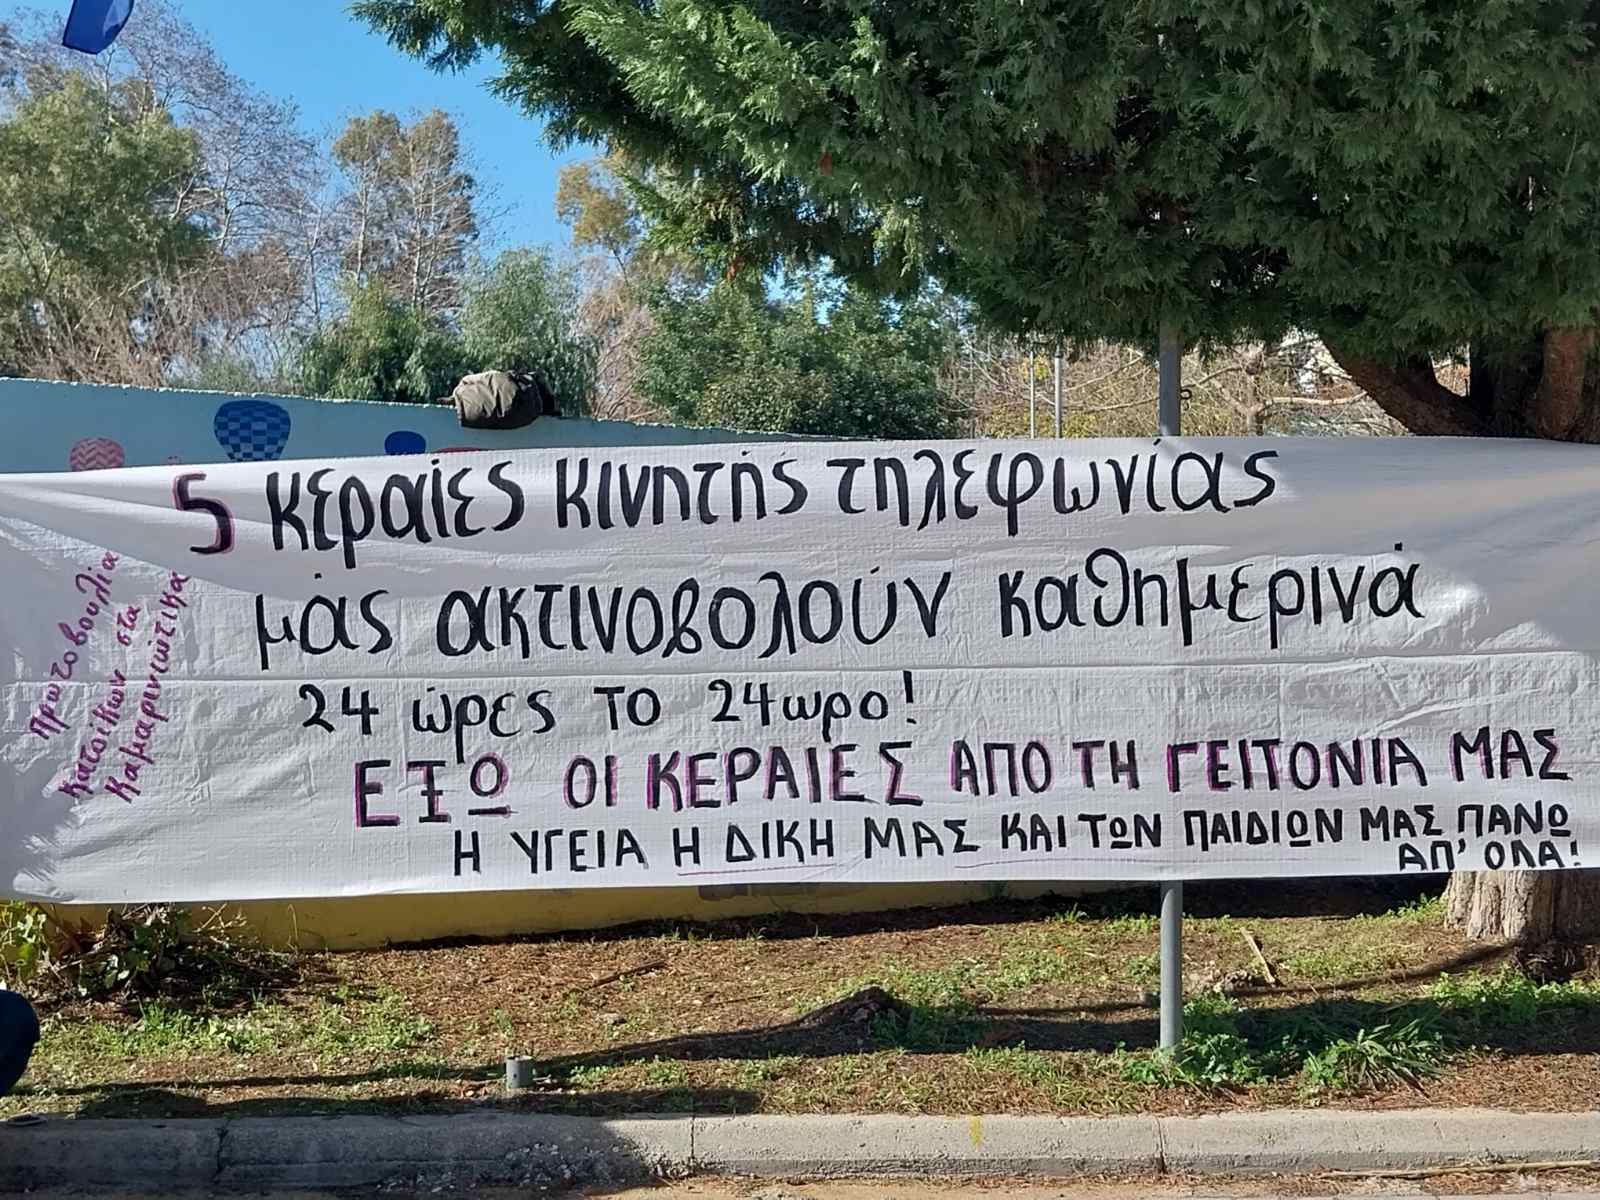 5 κεραίες κινητής τηλεφωνίας
μάς ακτινοβολούν καθημερινά
24 ώρες το 24ωρο!
ΕΞΩ ΟΙ ΚΕΡΑΙΕΣ ΑΠΟ ΤΗ ΓΕΙΤΟΝΙΑ ΜΑΣ
Η ΥΓΕΙΑ Η ΔΙΚΗ ΜΑΣ ΚΑΙ ΤΩΝ ΠΑΙΔΙΩΝ ΜΑΣ ΠΑΝΩ
ΑΠ' ΟΛΑ!
Πρωτοβουλία
κατοίκων στα
Καμαρινιώτικα